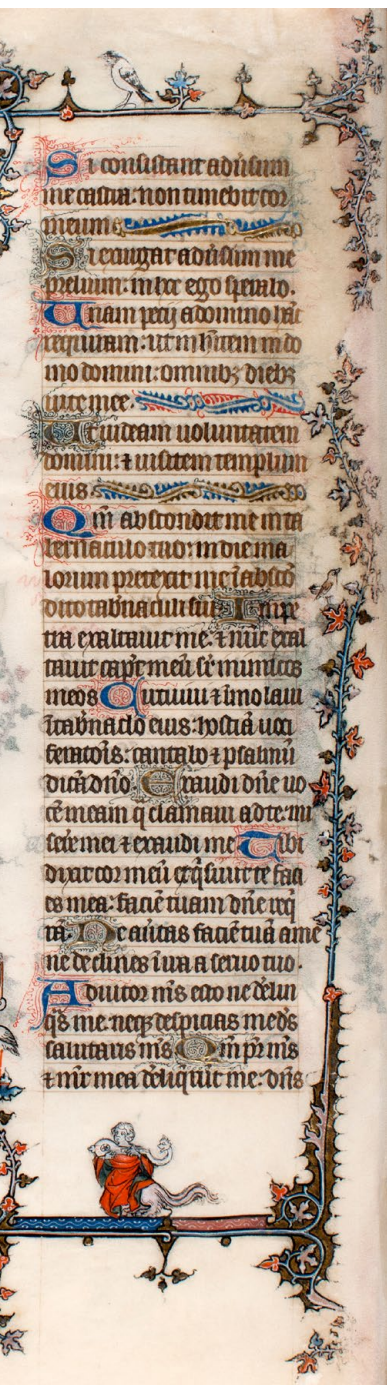 Si consistant adusum
me castra: non timebit cor
meum:
Si exurgat adusum me
prelium: in hoc ego sperabo.
Unam pecij a domino hanc
requiram: ut inhitem in do
mo domini: omnibz diebz
uite mee.
Ut uideam uoluntatem
domini: ⁊ uisitem templum
eius
Qm abscondit me in ta
bernaculo suo: in die ma
lorum protexit me ī absco
dito tabnaculi sui. In pe
tra exaltauit me: ⁊ nūc exal
tauit caput meū sr̄ inimicos
meos Circuiui ⁊ īmolaui
ī tabnaclo eius hostiā uoci
feratōis: cantabo ⁊ psalmū
dicā dnō. Exaudi dn̄e uo
cē meam q̄ clamaui ad te: mi
sere mei ⁊ exaudi me Tibi
dixit cor meū exq̄siuit te faci
es mea: faciē tuam dn̄e req̄
rā: Ne auertas faciē tuā a me
ne declines ī ira a seruo tuo.
Adiutor mīs esto ne derelin
q̄s me: neq; despicias me ds̄
salutaris mīs Qm pr̄ mīs
⁊ mr̄ mea dereliq̄rūt me: dn̄s